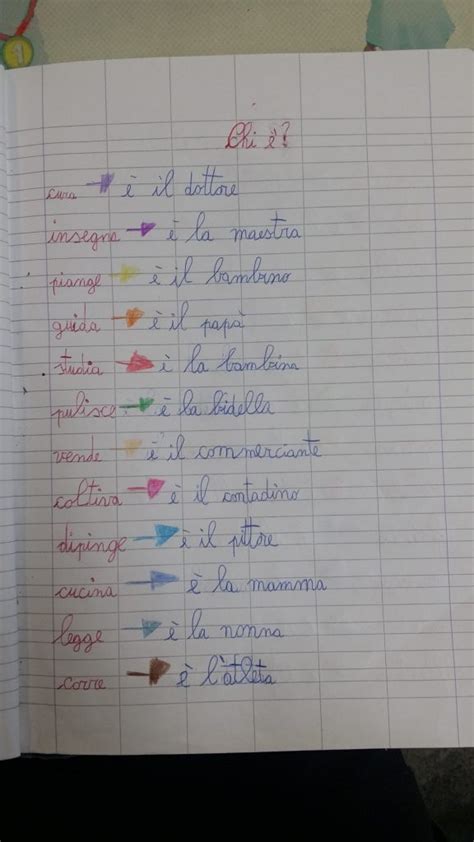 Chi è?
cura è il dottore
insegna è la maestra
piange è il bambino
guida è il papà
studia è la bambina
pulisce è la bidella
vende è il commerciante
coltiva è il contadino
dipinge è il pittore
cucina è la mamma
legge è la nonna
corre è l'atleta